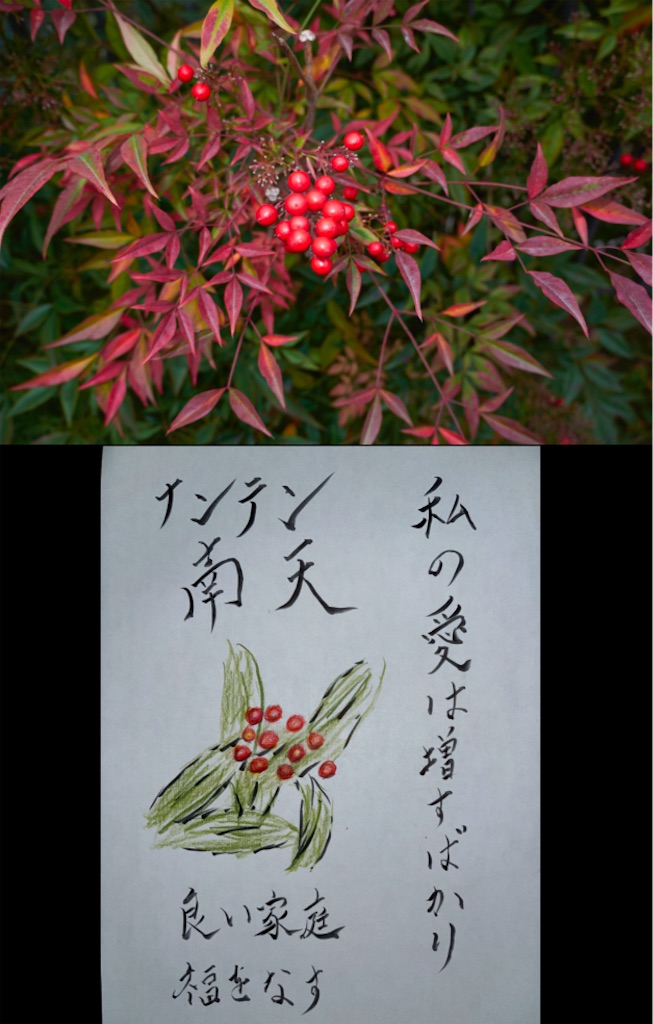 私の愛は増すばかり
ナンテン
南天
良い家庭
福をなす